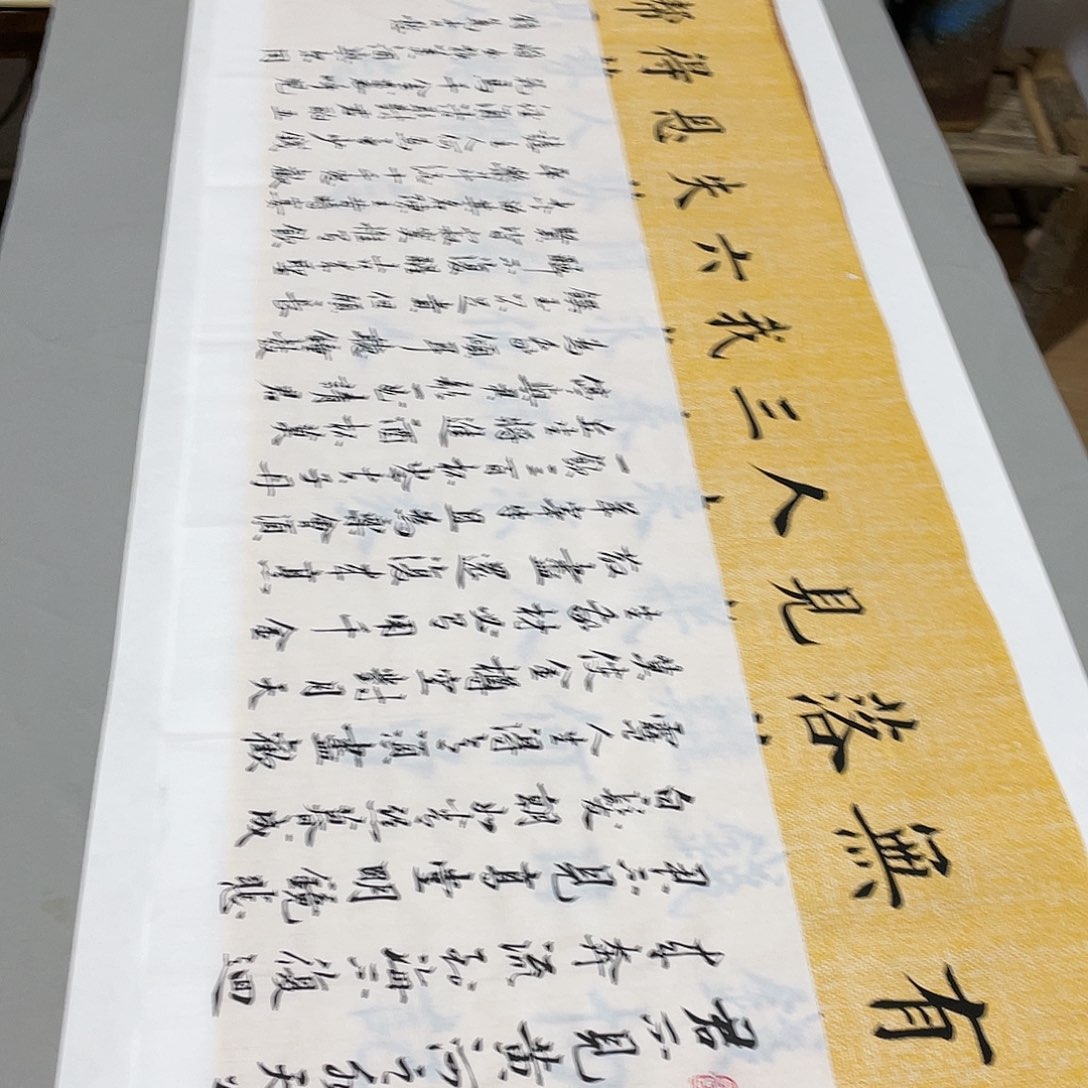 得息失六我三人見落無有
君不見黃河之水天
來奔流到海不復迴
君不見高堂明鏡悲
白髮朝如青絲暮成
雪人生得意須盡歡
莫使金樽空對月天
生我材必有用千金
散盡還復來烹
羊宰牛且為樂會須
一飲三百杯岑夫子丹
丘生將進酒杯莫
停與君歌一曲請君
為我傾耳聽鐘鼓
饌玉不足貴但願長
醉不復醒古來聖
賢皆寂寞惟有飲
者留其名陳王昔時宴
平樂斗酒十千恣歡
謔主人何為言少錢
徑須沽取對君酌五
花馬千金裘呼兒
將出換美酒與爾同
銷萬古愁